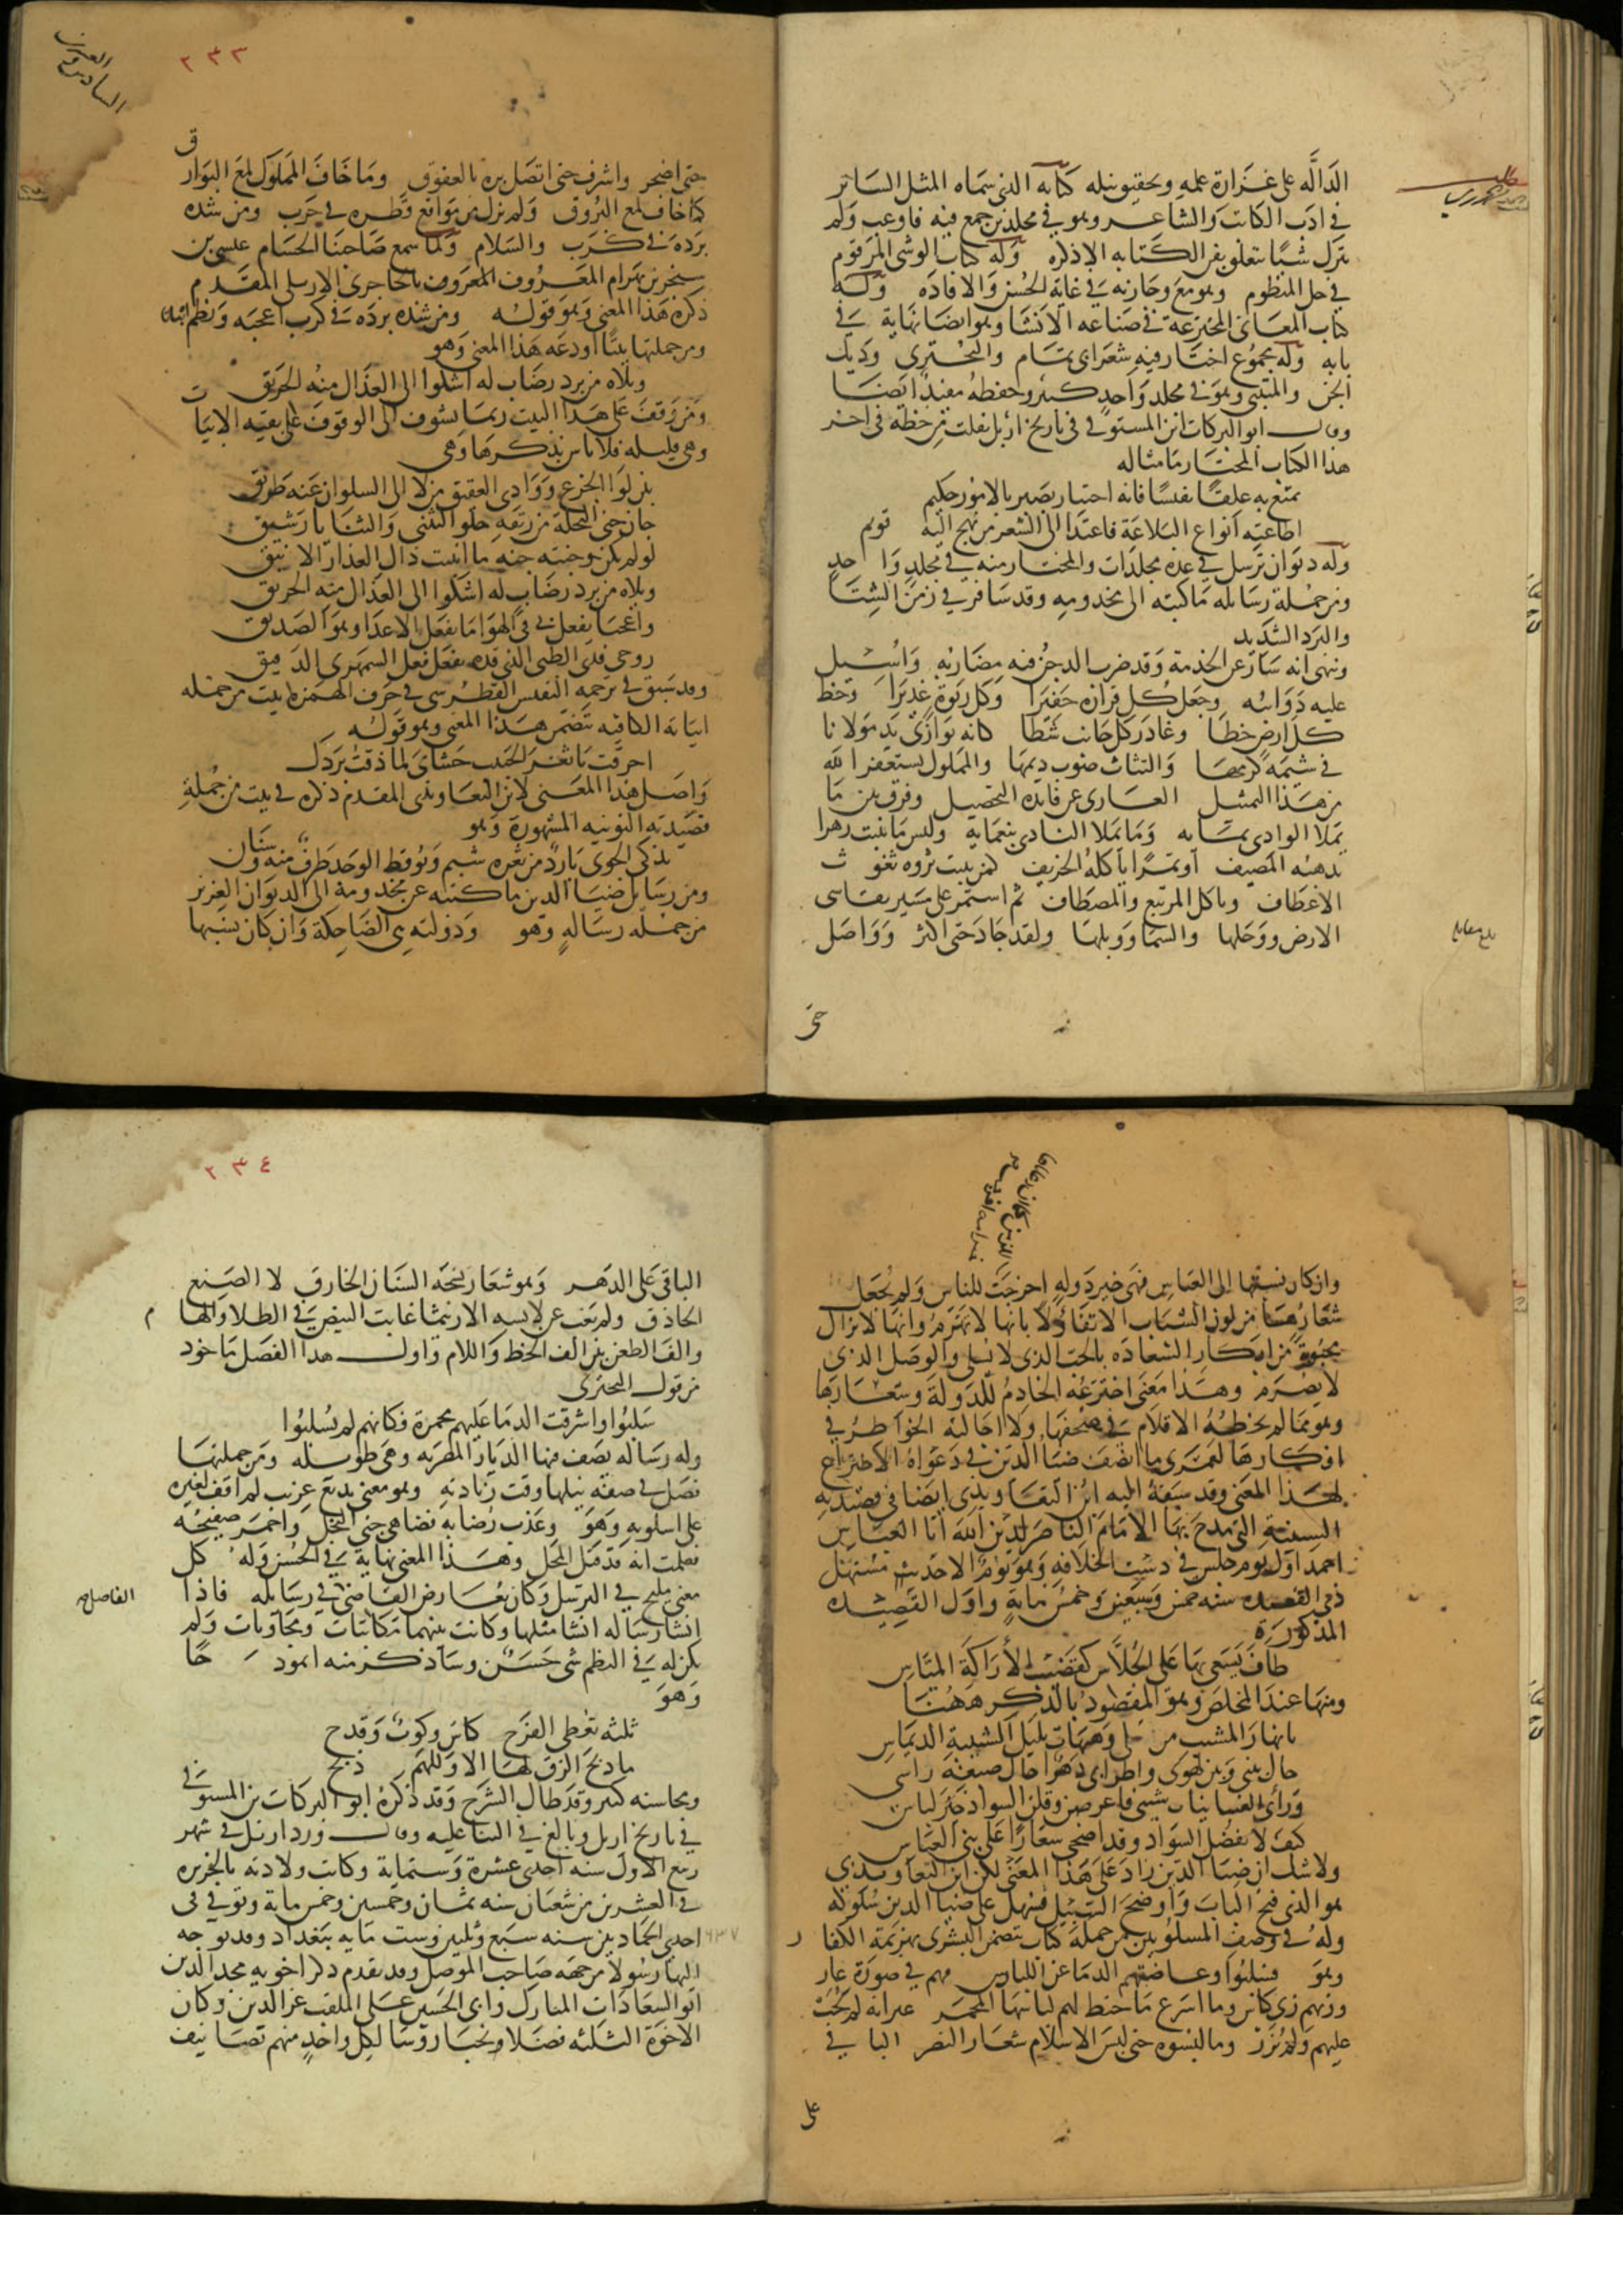 الدالة على غزارة علمه وتحقيق نبله كتابه الذي سماه المثل السائر
في ادب الكاتب والشاعر وهو في مجلدين جمع فيه فاوعب ولم
يترك شيًا يتعلق بفن الكتابه الا ذكره وله كتاب الوشى المرقوم
في حل المنظوم وهو مع وجازته في غاية الحسن والافادة وله
كتاب المعانى المخترعة في صناعه الانشا وهو ايضا نهاية في
بابه وله مجموع اختار فيه شعر ابى تمام والبحترى وديك
الجن والمتنبي وهو في مجلد واحد كبير وحفظه مفيد ايضا
وقال ابو البركات ابن المستوفي في تاريخ اربل نقلت من خطه في اخر
هذا الكتاب المختار ما مثاله
تمتع به علقًا نفيسًا فانه اختيار بصير بالامور حكيم
اطاعته انواع البلاغة فاهتدا الى الشعر من نهج اليه قويم
وله ديوان ترسل في عدة مجلدات والمختار منه في مجلد واحد
ومن جملة رسائله ما كتبه الى مخدومه وقد سافر في زمن الشتا
والبرد الشديد
وينهى انه سار عن الخدمة وقد ضرب الدجن فيه مضاربه واسبل
عليه ذوائبه وجعل كل قرارة حفيرا وكل ربوة غديرا وخط
كل ارض خطا وغادر كل جانب شطا كانه يوازى يد مولانا
في شيمة كرمها والتثاث صوب ديمها والمملوك يستغفر الله
من هذا التمثيل العارى عن فائدة التحصيل وفرق بين ما
يملا الوادى بمائه وما يملا النادى بنعمائه وليس ما ينبت زهرا
يذهبه المصيف او تمرًا ياكله الخريف كمن ينبت ثروه تغوث
الاعطاف وياكل المرتبع والمصطاف ثم استمر على مسير يقاسى
الارض ووحلها والسما ووبلها ولقد جاد حتى اكثر وواصل
حتى
بلغ مقابله
٢٣٣
حتى اضجر واشرف حتى اتصل بره بالعقوق وما خاف المملوك لمع البوارق
كما خاف لمع البروق ولم يزل من مواقع قطره في حرب ومن شدة
برده في كرب والسلام ولما سمع صاحبنا الحسام عيسى بن
سنجر بن بهرام المعروف المعروف بالحاجرى الاربلى المقدم
ذكره هذا المعنى وهو قوله ومن شدة برده في كرب اعجبه ونظم ابياتا
ومن جملتها بيتًا اودعه هذا المعنى وهو
ويلاه من برد رضاب له اشكوا الى العذال منه الحريق
ومن وقف على هذا البيت ربما يتشوف الى الوقوف على بقيه الابيات
وهى قليله فلا باس بذكرها وهى
بين لوا الجزع ووادى العقيق من لا الى السلوان عنه طريق
جان جنى النحلة من ريقه حلو التثنى والثنايا رشيق
لو لم تكن وجنته جنه ما انبتت ذاك العذار الانيق
ويلاه من برد رضاب له اشكوا الى العذال منه الحريق
واعجبا يفعل بى في الهوا ما يفعل الاعدا وهو الصديق
روحى فدى الظبى الذى قده يفعل فعل السمهرى الدقيق
وقد سبق في ترجمه النفيس القطرسى في حرف الهمزه بيت من جمله
ابياته الكافيه تتضمن هذا المعنى وهو قوله
احرقت يا ثغر الحبيب حشاى لما ذقت بردك
واصل هذا المعنى لابن التعاويذى المقدم ذكره في بيت من جملة
قصيدته النونيه المشهورة وهو
يذكى الجوى بارد من ثغره شبم ويوقظ الوجد طرف منه وسنان
ومن رسايل ضيا الدين ما كتبه عن مخدومه الى الديوان العزيز
من جمله رسالة وهو ودولته هى الضاحكة وان كان نسبها
وان كان نسبها الى العباس فهى خير دولة اخرجت للناس ولم يجعل
شعارها من لون الشباب الا تفاؤلا بانها لا تهرم وانها لا تزال
محبوة من ابكار السعادة بالحب الذى لا يسلى والوصل الذى
لا يصرم وهذا معنى اخترعه الخادم للدولة وشعارها
وهو مما لم تخطه الاقلام في صحفها ولا اجالته الخواطر في
افكارها لعمرى ما انصف ضيا الدين في دعواه الاختراع
لهذا المعنى وقد سبقه اليه ابن التعاويذى ايضا في قصيدته
السينيه التى مدح بها الامام الناصر لدين الله ابا العباس
احمد اول يوم جلس في دست الخلافه وهو يوم الاحد مستهل
ذى القعده سنه خمس وسبعين وخمس ماية واول القصيده
المذكورة
طاف يسعى بها على الجلاس كقضيب الاراكة المياس
ومنها عند المخلص وهو المقصود بالذكر ههنا
يا نهار المشيب من لى وهيهات بليل الشبيبة الديماس
حال بينى وبين لهوى واطرابى دهر احال صبغة راسى
ورأى الغانيات شيبى فاعرضن وقلن السواد خير لباس
كيف لا يفضل السواد وقد اضحى شعارًا على بنى العباس
ولا شك ان ضيا الدين زاد على هذا المعنى لكن ابن التعاويذى
هو الذى فتح الباب واوضح السبيل فسهل على ضيا الدين سلوكه
وله في وصف المسلوبين من جملة كتاب يتضمن البشرى بهزيمة الكفار
وهو فسلبوا وعاضتهم الدما عن اللباس فهم في صورة عار
وزيهم زى كاس وما اسرع ما خيط لهم لباسها المحمر غير انه لم يجب
عليهم ولم يزر وما لبسوه حتى لبس الاسلام شعار النصر الباقي
على
٢٣٤
الباقى على الدهر وهو شعار نسجه السنان الخارق لا الصنع
الحاذق ولم يغب عن لابسه الا ريثما غابت البيض في الطلا والهام
والف الطعن بين الف الخط واللام واول هذا الفصل ماخوذ
من قول البحترى
سلبوا واشرقت الدما عليهم محمرة فكانهم لم يسلبوا
وله رسالة يصف فيها الديار المصريه وهى طويله ومن جملتها
فصل في صفة نيلها وقت زيادته وهو معنى بديع غريب لم اقف لغيره
على اسلوبه وهو وعذب رضابه فضاهى جنى النحل واحمر صفيحه
فعلمت انه قد قتل المحل وهذا المعنى نهاية في الحسن وله كل
معنى مليح في الترسل وكان يعارض القاضى الفاضل في رسايله فاذا
انشا رساله انشا مثلها وكانت بينهما مكاتبات ومجاوبات ولم
يكن له في النظم شى حسن وساذكر منه انموذجًا
وهو
ثلثه تعطى الفرح كاس وكوب وقدح
ما ذبح الزق لها الا وللهم ذبح
ومحاسنه كثيره وقد طال الشرح وقد ذكره ابو البركات بن المستوفى
في تاريخ اربل وبالغ في الثنا عليه وقال ورد اربل في شهر
ربيع الاول سنه احدى عشرة وستماية وكانت ولادته بالجزيره
في العشرين من شعبان سنه ثمان وخمسين وخمس ماية وتوفى في
احدى الجمادين سنه سبع وثلثين وست مايه ببغداد وقد توجه
اليها رسولا من جهة صاحب الموصل وقد تقدم ذكر اخويه مجد الدين
ابو السعادات المبارك وابى الحسن على الملقب عز الدين وكان
الاخوة الثلثه فضلا نجبا روسا لكل واحد منهم تصانيف
٦٣٧